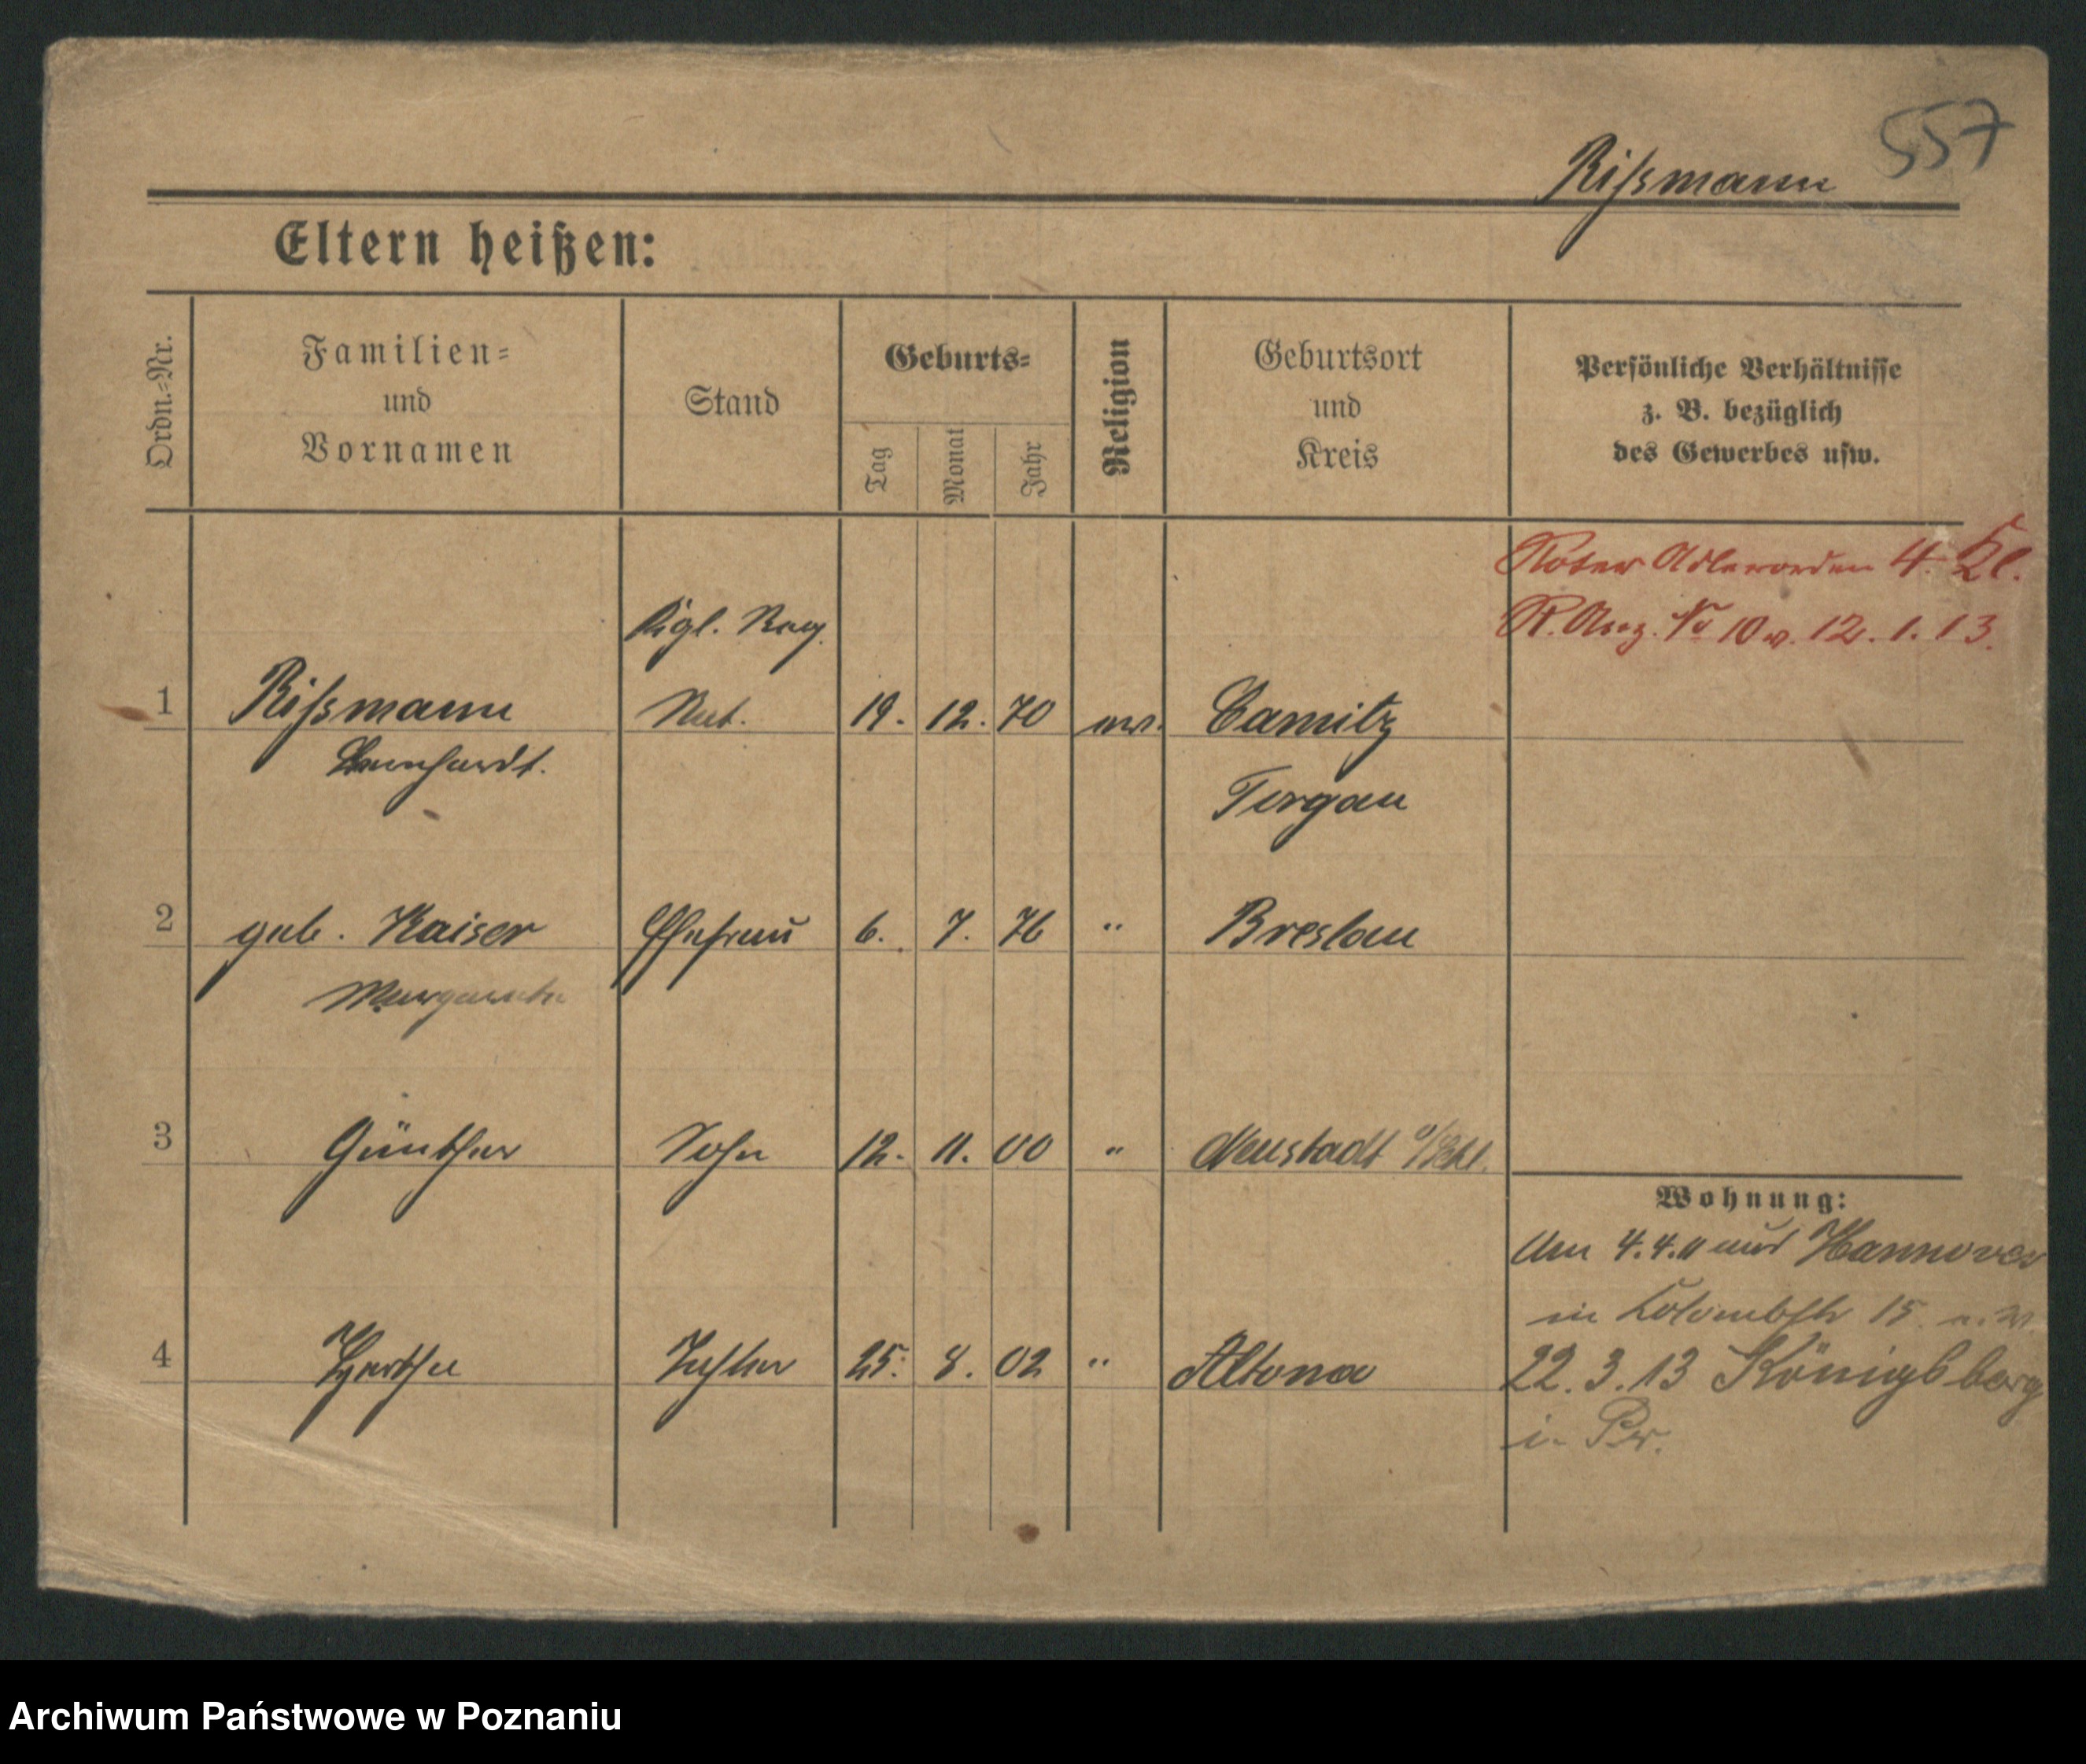 557
Rißmann
Eltern heißen:
Ordn.-Nr.
Familien-
und
Vornamen
Stand
Geburts-
Tag
Monat
Jahr
Religion
Geburtsort
und
Kreis
Persönliche Verhältnisse
z. B. bezüglich
des Gewerbes usw.
Roter Adlerorden 4. Kl.
R. Anz. No 10 v. 12. 1. 13.
Kgl. Reg.
1 Rißmann Rat. 19. 12. 70 ev. Camitz
Bernhardt.
Torgau
2 geb. Kaiser Ehefrau 6. 7. 76 " Breslau
Margarete
3 Günther Sohn 12. 11. 00 " Neustadt o/Schl.
Wohnung:
Am 4.4.11 aus Hannover
in 15.
4 Hertha Tochter 25. 8. 02 " Altona
22. 3. 13 Königsberg
i. Pr.
Archiwum Państwowe w Poznaniu